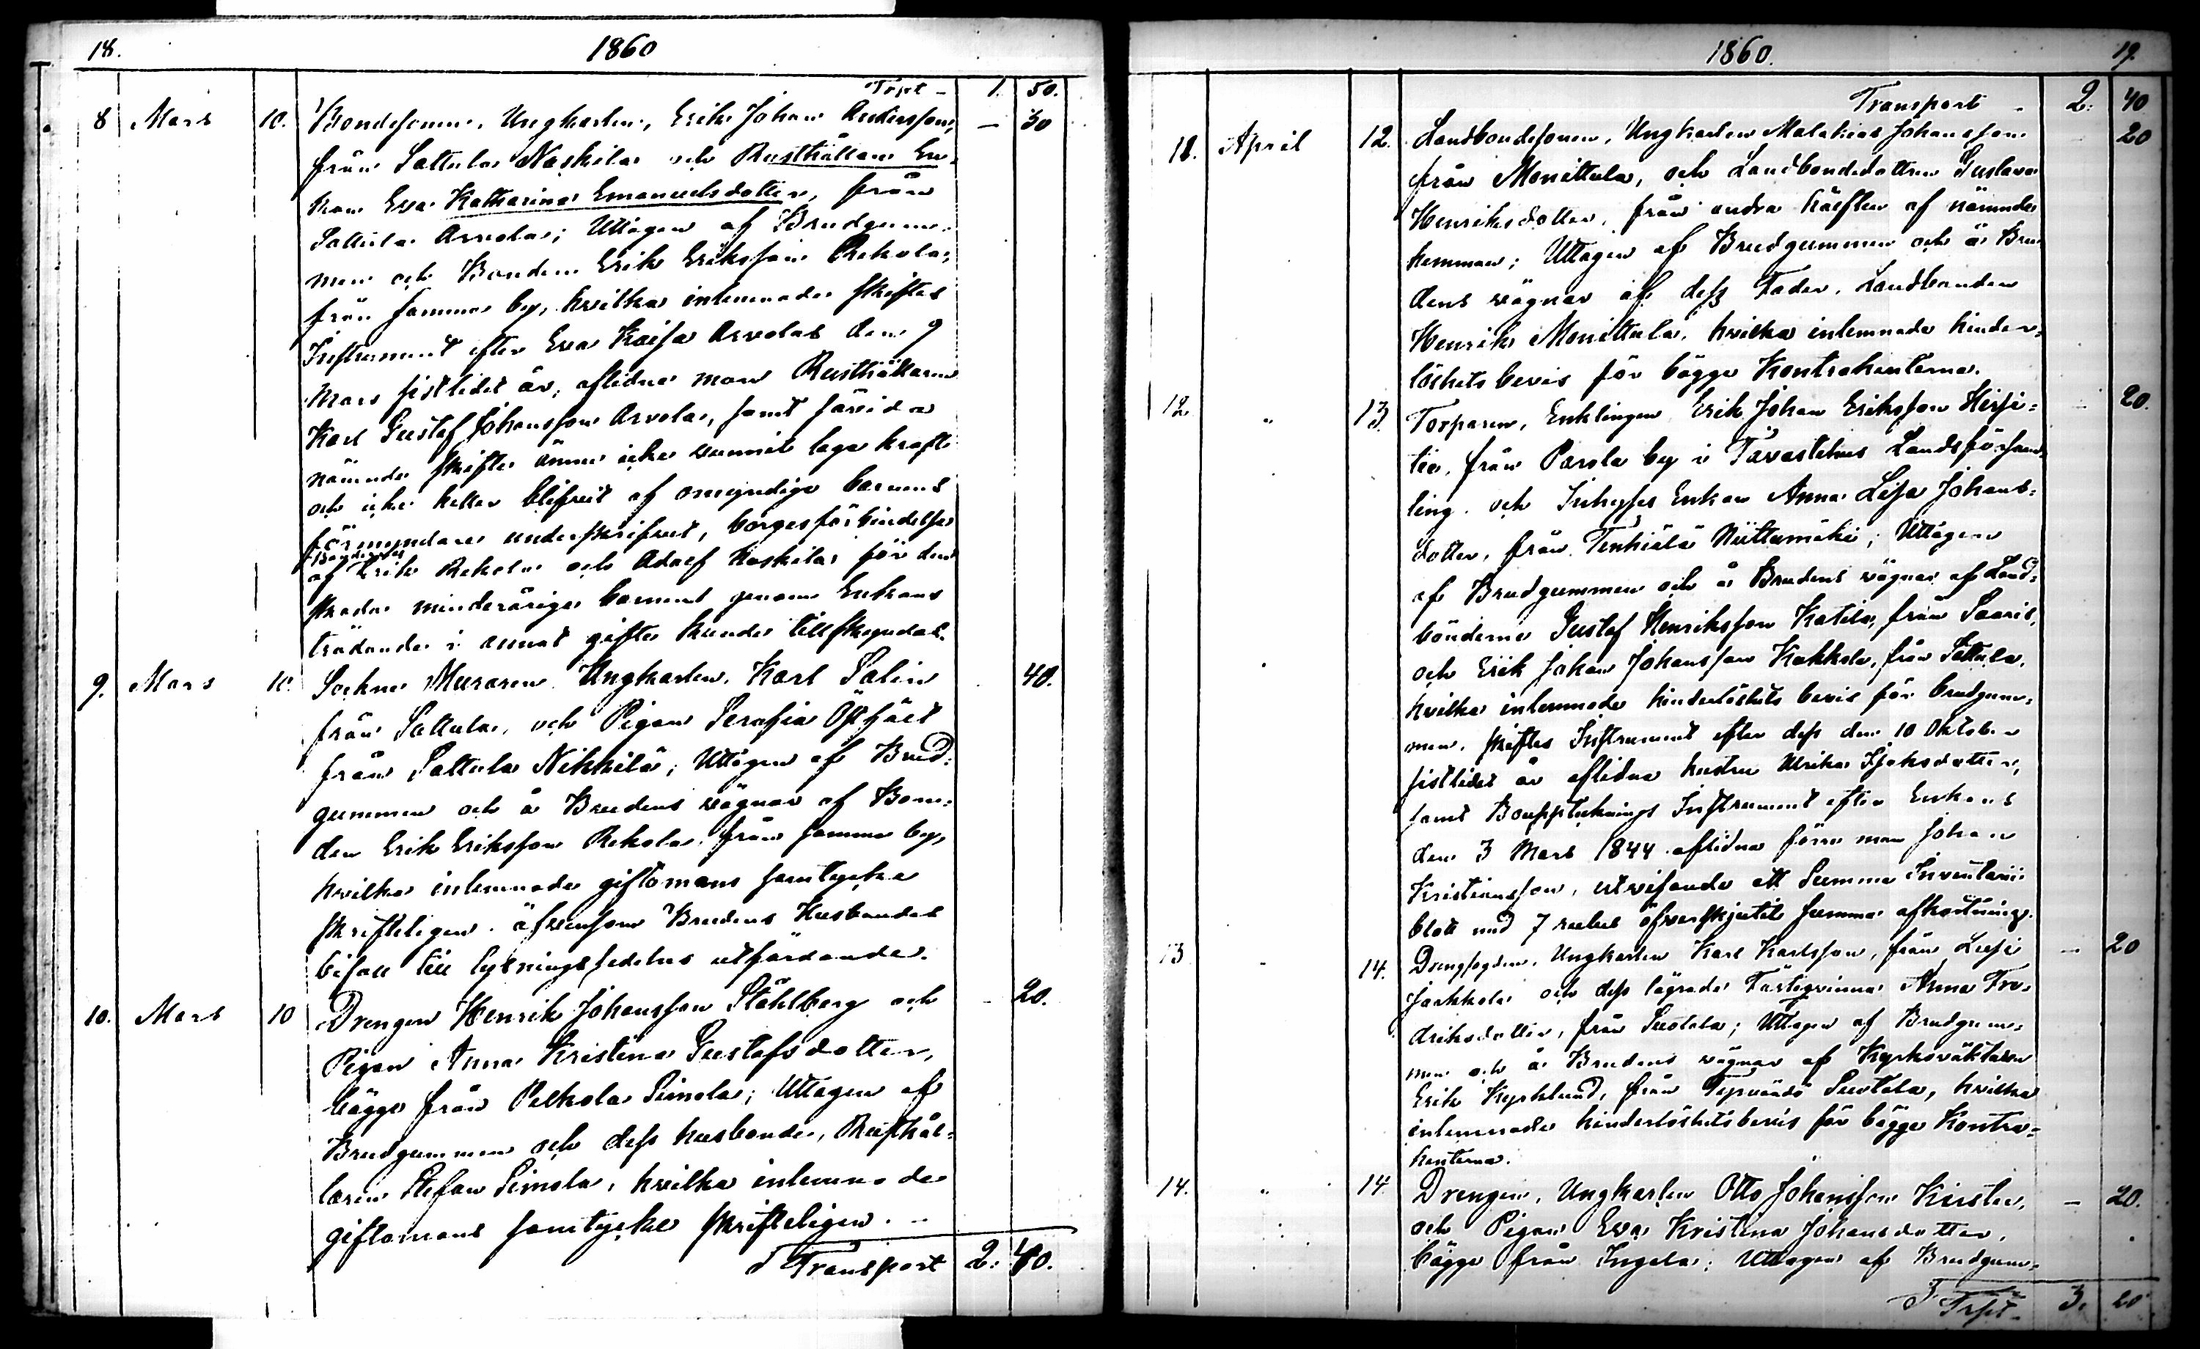 18.
1860
Trpt - 1. 50.
8 Mars 10. Bondesonen, Ungkarlen, Erik Johan Andersson, — 30
från Sattula Naskila och Rusthållare En-
kan Eva Katharina Emanuelsdotter, från
Sattula Arvola; Uttagen af Brudgum-
men och Bonden Erik Eriksson Rekola,
från samma by, hvilka inlemnade skiftes
Instrument efter Eva Kaisa Arvolas den 9
Mars sistlidet år, aflidne man Rusthållaren
Karl Gustaf Johansson Arvola, samt
nämnde skifte ännu icke vunnit laga kraft
och icke heller blifvit af omyndige barnens
förmyndare underskrifvet, borgesförbindelse
Bönderne
af Erik Rekola och Adolf Naskila för den
skada minderårige barnen genom Enkans
trädande i annat gifte kunde tillskyndas.
9. Mars 10. Sockne Muraren Ungkarlen, Karl Salin 40.
från Sattula, och Pigan Serafia
från Sattula Nikkilä; Uttagen af Brud-
gummen och å Brudens vägnar af Bon-
den Erik Eriksson Rekola från samma by,
hvilka inlemnade giftomans samtycke
skrifteligen, äfvensom Brudens Husbondes
bifall till lysningssedelns utfärdande.
10. Mars 10 Drengen Henrik Johansson Ståhlberg och - 20.
Pigan Anna Kristina Gustafsdotter,
bägge från Pelkola Simola; Uttagen af
Brudgummen och dess husbonde, Rusthål-
laren Stefan Simola, hvilka inlemnade
giftomans samtycke skrifteligen. -
Transport 2. 40.
1860.
19.
Transport - 2. 40
11. April 12. Landbondesonen, Ungkarlen Malakias Johansson 20
från Monittula, och Landbondedottren Gustava
Henriksdotter, från andra hälften af nämnde
hemman; Uttagen af Brudgummen och å Bru-
dens vägnar af dess Fader, Landbonden
Henrik Monittula, hvilka inlemnade hinder-
löshets bevis för bägge Kontrahenterna.
12. " 13. Torparen, Enklingen Erik Johan Eriksson Hirsi- - 20.
tie, från Parola by i Tavastehus Landsförsam-
ling och Inhyses Enkan Anna Lisa Johans-
dotter, från Tenhiälä Niittumäki; Uttagen
af Brudgummen och å Brudens vägnar af Land-
bönderne Gustaf Henriksson Katila, från Saaris,
och Erik Johan Johansson Kakkola, från Sattula,
hvilka inlemnade hinderlöshets bevis för brudgum-
men, skiftes Instrument efter dess den 10 Oktober
sistlidet år aflidna hustru Ulrika Isaksdotter,
samt Bouppteknings Instrument efter Enkans
den 3 Mars 1844 aflidne förre man Johan
Kristiansson, utvisande att Summa Inventarii
blott med 7 rubel öfverskjutit summa afkortning.
13 " 14. Drengfogden, Ungkarlen Karl Karlsson, från Lusi — 20
Jaakkola och dess lägrade Fästeqvinna Anna Fre-
driksdotter, från Suotala; Uttagen af Brudgum-
men och å Brudens vägnar af Kyrkoväktaren
Erik Kyrklund, från Tyrväntö Suotala, hvilka
inlemnade hinderlöshetsbevis för bägge Kontra-
henterna.
14. " 14 Drengen, Ungkarlen Otto Johansson — 20.
och Pigan Eva Kristina Johansdotter,
bägge från Ingela; Uttagen af Brudgum-
Trpt- 3. 20